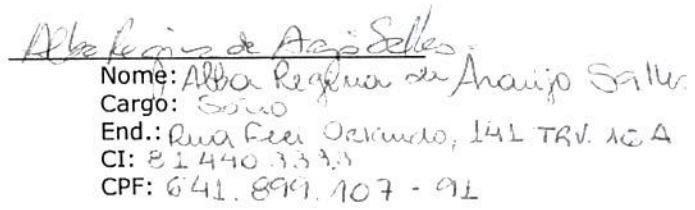 Alba Regina de Araujo Salles
Nome: Alba Regina de Araujo Salles
Cargo: Sócio
End.: Rua Frei Orlando, 141 TRV. 16 A
CI: 81440 333.3
CPF: 641.899.107-91